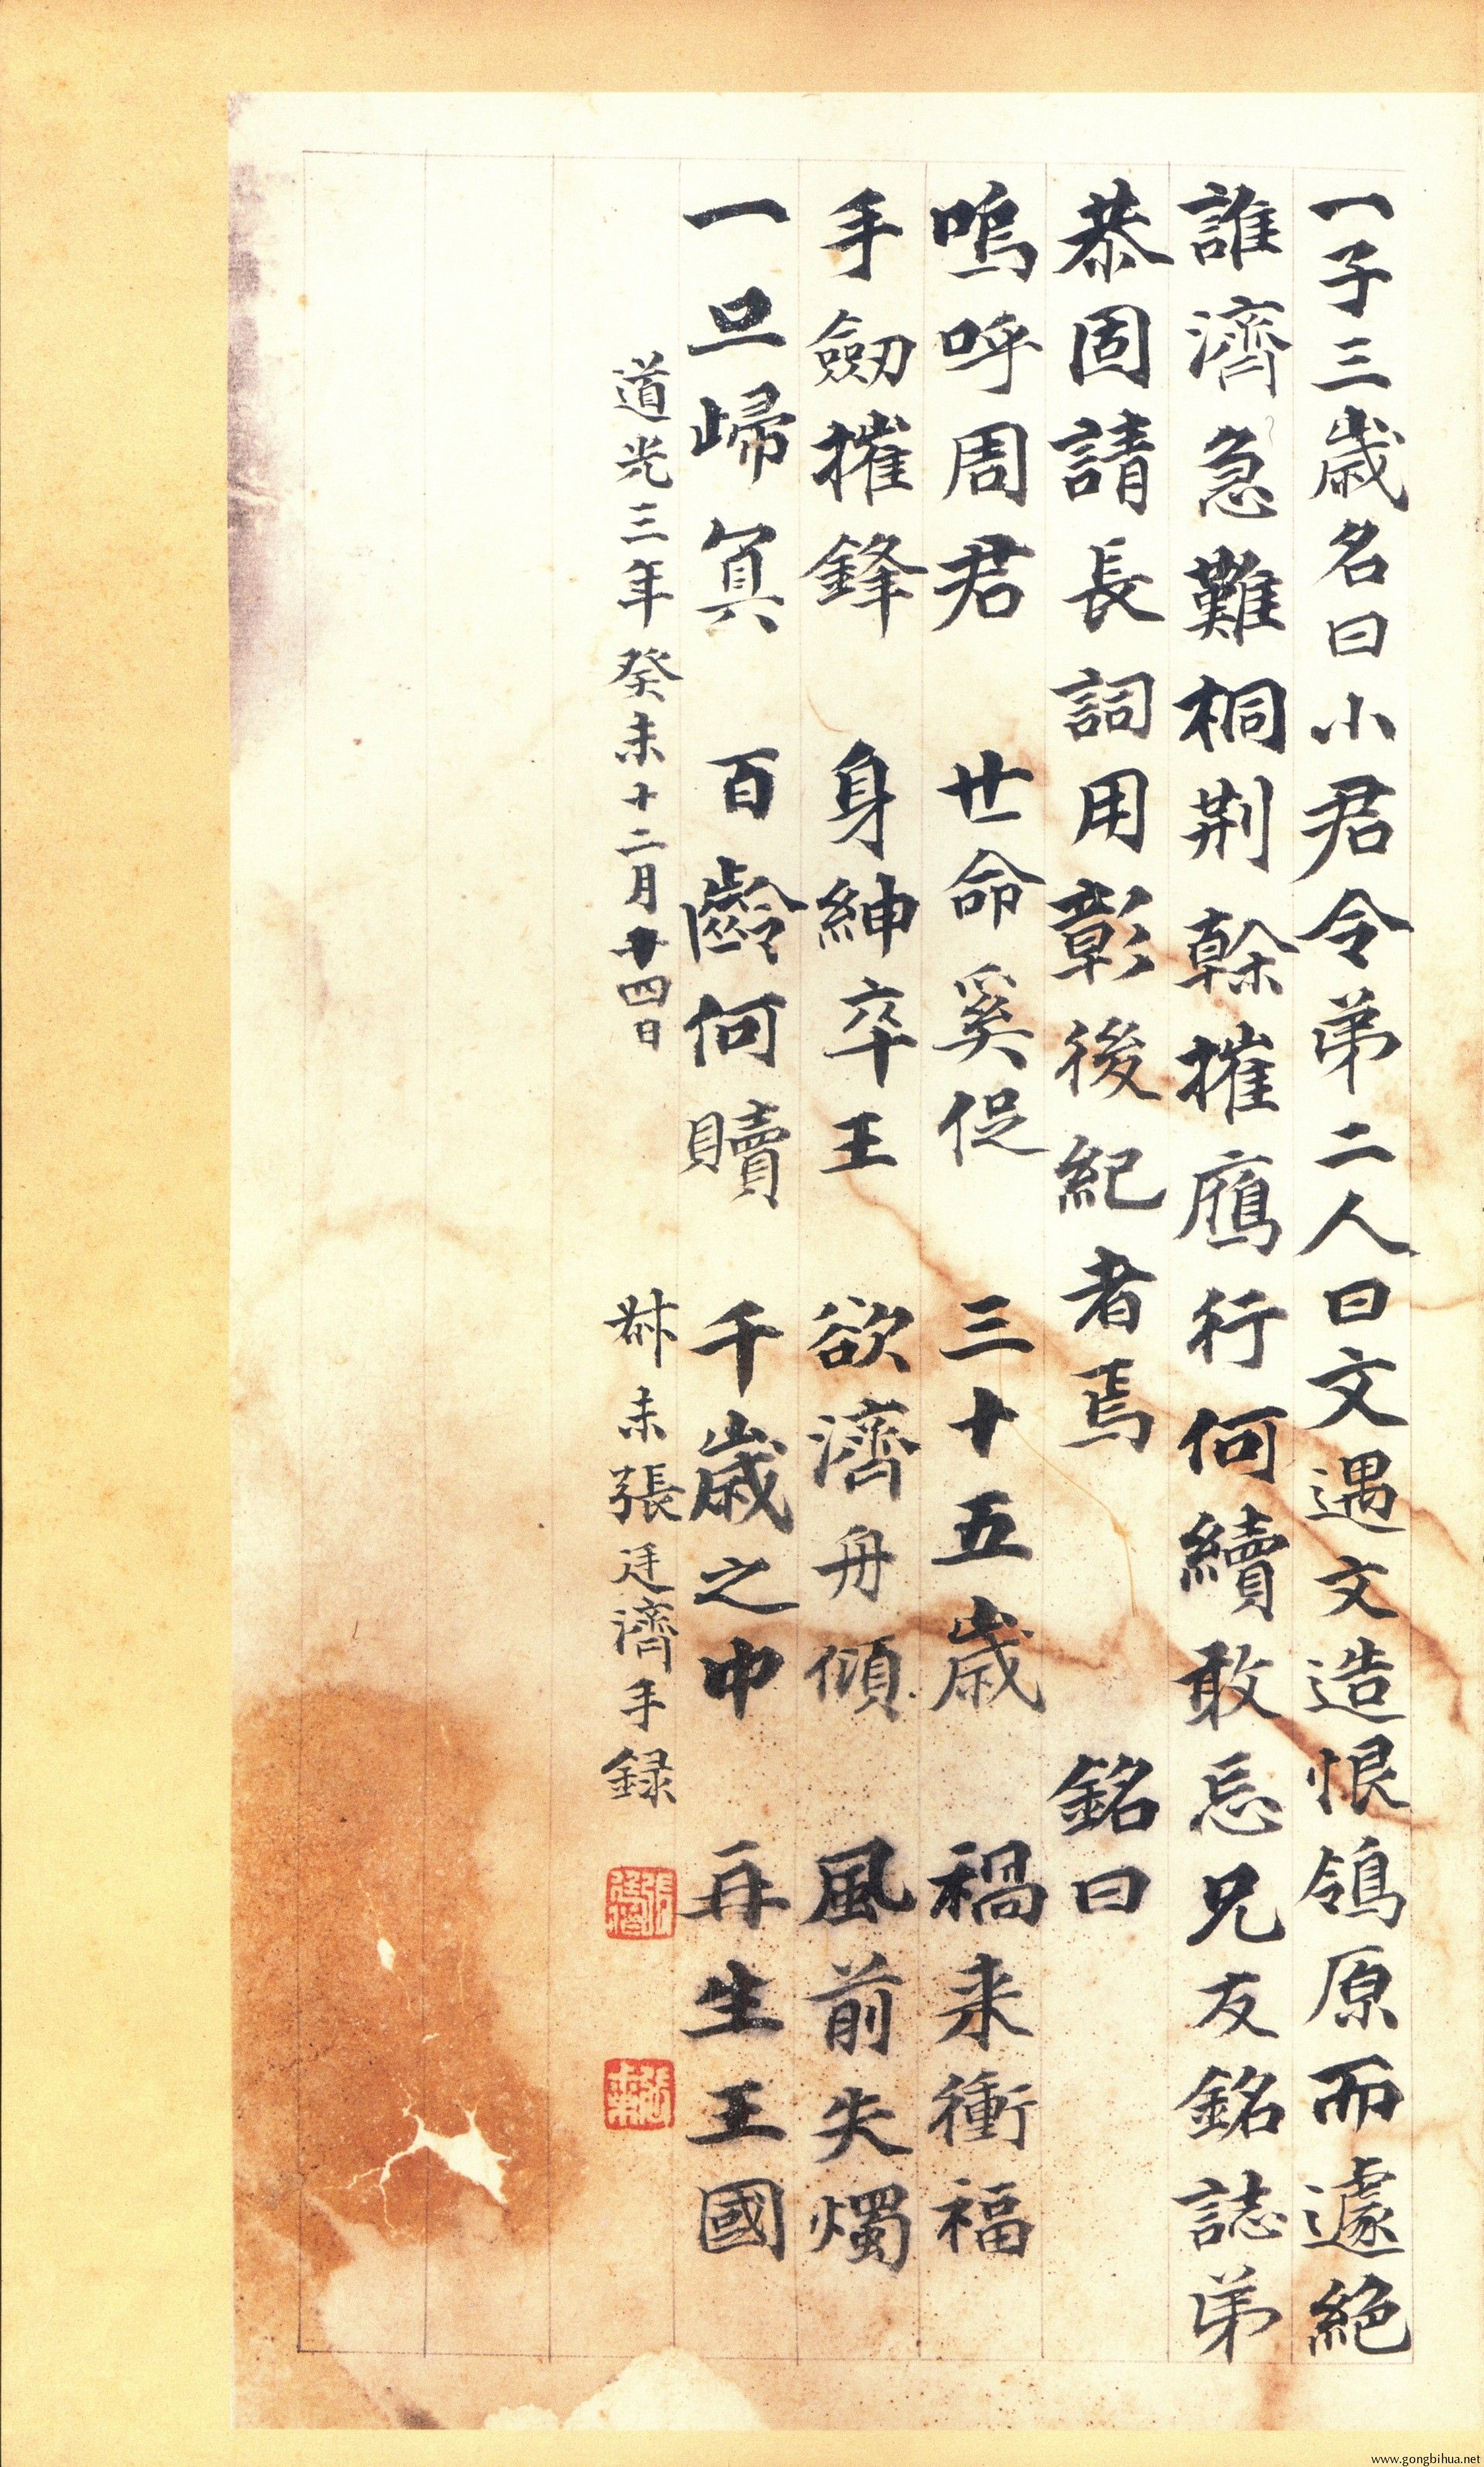 一子三歲名曰小君令弟二人曰文遇文造恨鴒原而遽絕
誰濟急難桐荆榦摧鴈行何續敢忘兄友銘誌弟
恭固請長詞用彰後紀者焉 銘曰
嗚呼周君 世命奚促 三十五歲 禍来衝福
手劒摧鋒 身紳卒王 欲濟舟傾 風前失燭
一旦歸冥 百齡何贖 千歲之中 再生王國
道光三年癸未十二月廿四日 叔未張廷濟手録
張廷濟
張叔未
www.gongbihua.net